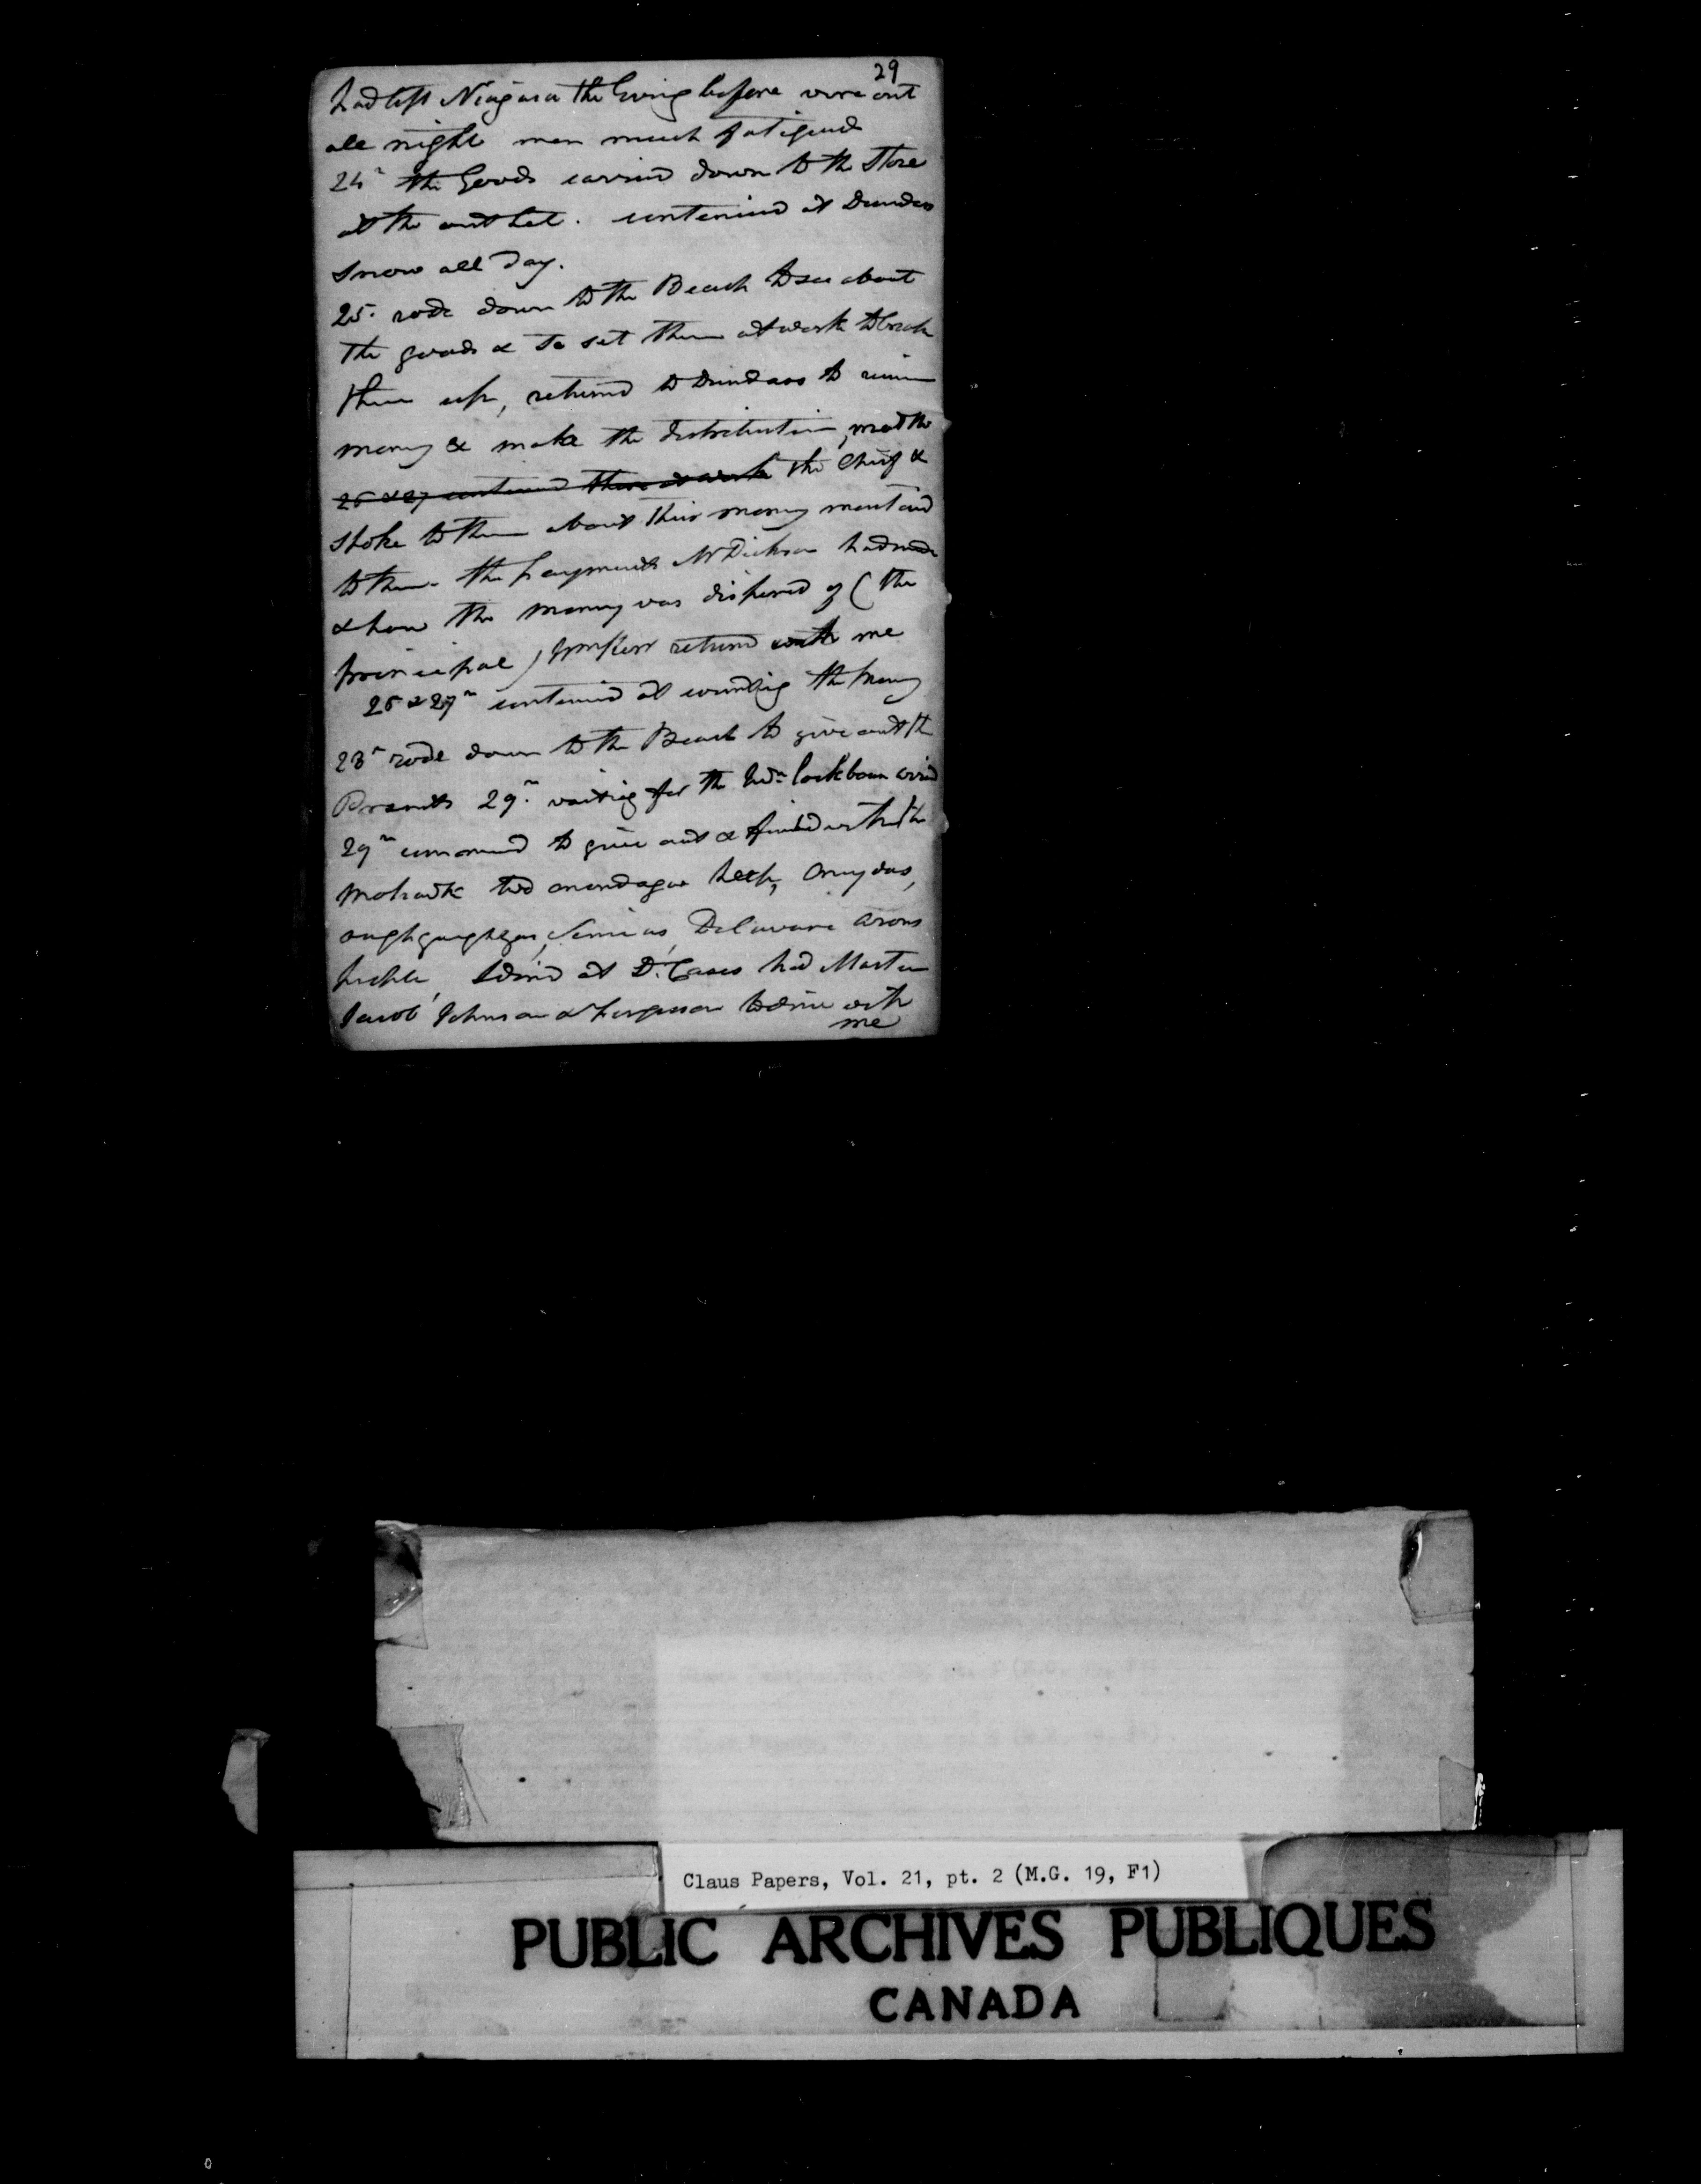 29
had left Niagara the Eving before were out
all night men much fatigued
24th the Goods carried down to the Store
at the outlet. continued at Dundas
Snow all Day.
25. rode down to the Beach to see about
the goods & to set them at work to break
them up, returned to Dundass to
money & make the distribution, met the
26 & 27 continued there at work the Chief &
spoke to them about their money mentiond
to them the payments Mr Dickson had made
& how the money was disposed of (the
principal) return with me
26 & 27th continued at counting the money
28th rode down to the Beach to give out the
Presents 29th waiting for the Inds
29th commencd to give out & finishd with the
Mohawk two onondagas Onaydas,
Delaware Arons
people, dined at Dr Cases had Martin
Jacob Johnson & Ferguson to dine with
me
Claus Papers, Vol. 21, pt. 2 (M.G. 19, F1)
PUBLIC ARCHIVES PUBLIQUES
CANADA